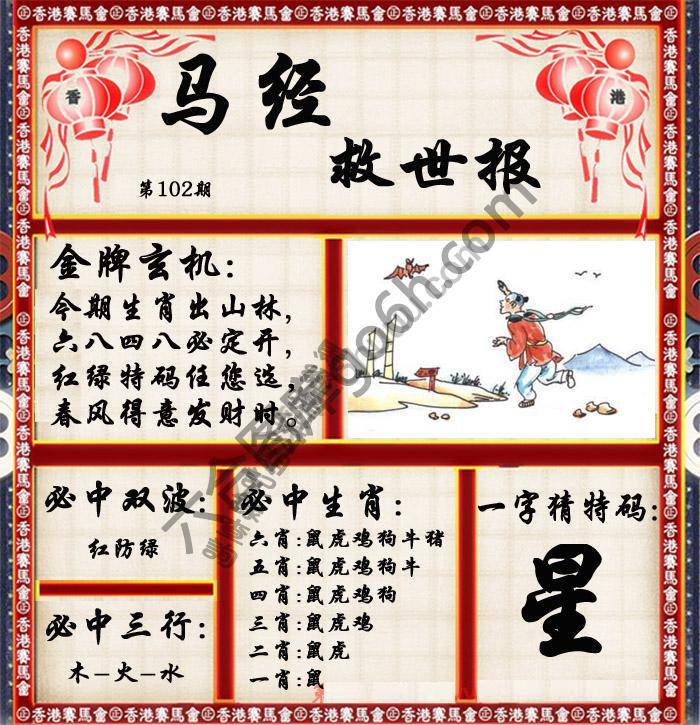 香港賽馬會㊣香港賽馬會㊣香港賽馬會㊣香港賽馬會㊣香港賽馬會㊣香港賽馬會㊣香港賽馬會
香
港
马经
救世报
第102期
金牌玄机:
今期生肖出山林,
六八四八必定开,
红绿特码任您选,
春风得意发财时。
必中双波:
红防绿
必中三行:
木–火–水
必中生肖:
六肖:鼠虎鸡狗牛猪
五肖:鼠虎鸡狗牛
四肖:鼠虎鸡狗
三肖:鼠虎鸡
二肖:鼠虎
一肖:鼠
一字猜特码:
星